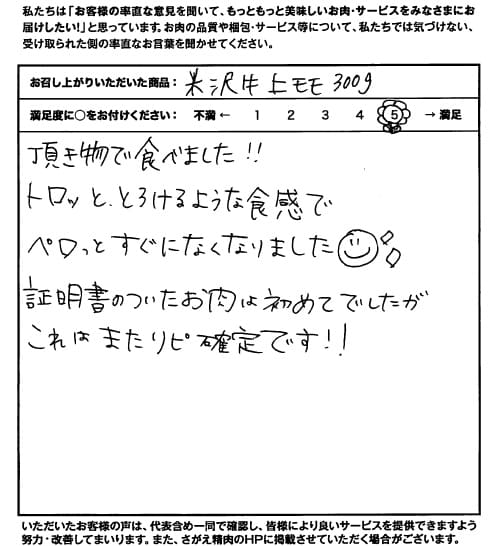 私たちは「お客様の率直な意見を聞いて、もっともっと美味しいお肉・サービスをみなさまにお
届けしたい！」と思っています。お肉の品質や梱包・サービス等について、私たちでは気づけない、
受け取られた側の率直なお言葉を聞かせてください。
お召し上がりいただいた商品： 米沢牛上モモ 300g
満足度に○をお付けください： 不満 ← 1 2 3 4 5 → 満足
頂き物で食べました!!
トロッと、とろけるような食感で
ペロっとすぐになくなりました
証明書のついたお肉は初めてでしたが
これはまたリピ確定です!!
いただいたお客様の声は、代表含め一同で確認し、皆様により良いサービスを提供できますよう
努力・改善してまいります。また、さがえ精肉のHPに掲載させていただく場合がございます。